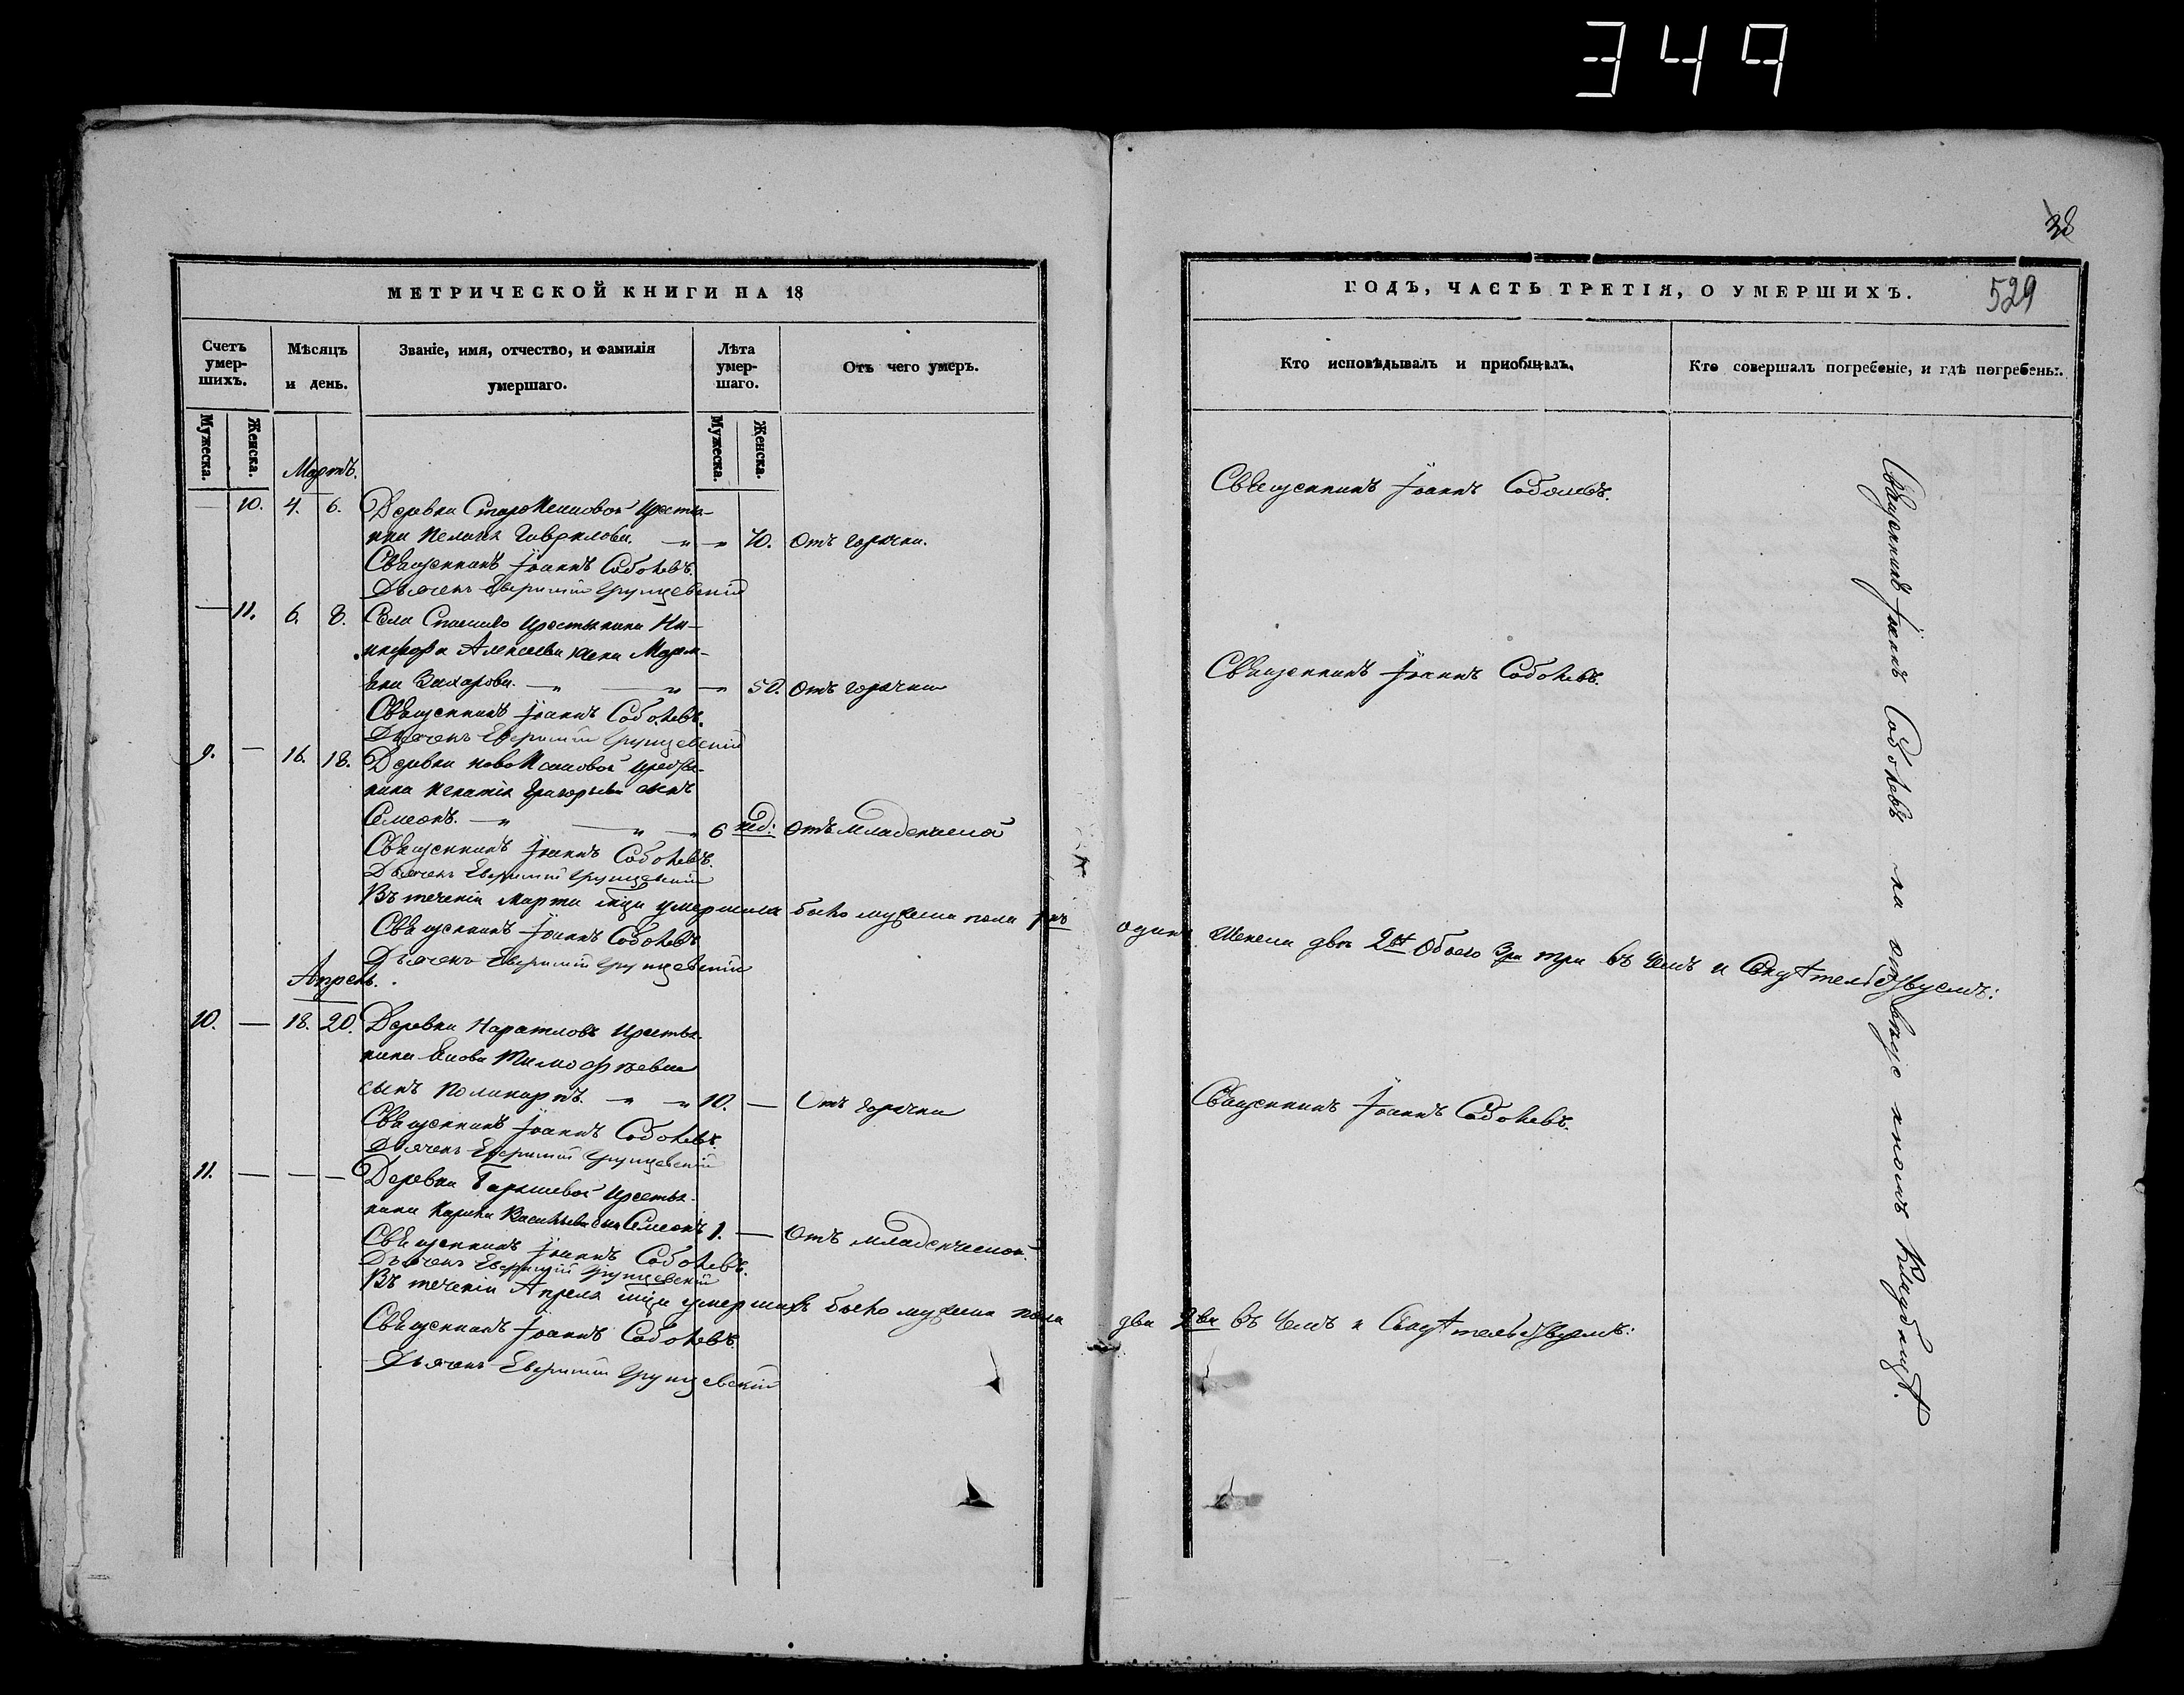 349
38
МЕТРИЧЕСКОЙ КНИГИ НА 18
Счетъ умер-шихъ.
Мѣсяцъ и день.
Званіе, имя, отчество, и фамилія умершаго.
Лѣта умер-шаго.
Отъ чего умеръ.
Мужеска.
Женска.
Мужеска.
Женска.
Мартъ.
— 10. 4. 6. Деревни Крестья-
Гаврилова. „ „ 70. Отъ горячки.
Священникъ Іоаннъ Соболевъ.
Дьячекъ Евфимій
— 11. 6. 8. Села Спаского крестьянина Ни-
кифора Алексѣева жена Марѳ-
Захарова. — „ — „ — 50. Отъ горячки
Священникъ Іоаннъ Соболевъ.
Дьячекъ Евфимій
9. — 16. 18. Деревни ново крестья-
нина Игнатія Григорьева сынъ
Симеонъ. — „ — „ — 6 нед: Отъ младенческой
Священникъ Іоаннъ Соболевъ.
Дьячекъ Евфимій
Въ теченіи марта мца умершихъ было мужеска пола 1нъ
Священникъ Іоаннъ Соболевъ
Дьячекъ Евфимій
Апрель.
10. — 18. 20. Деревни крестья-
нина Тимофѣева
сынъ Поликарпъ. „ „ 10. — Отъ горячки
Священникъ Іоаннъ Соболевъ.
Дьячекъ Евфимій
11. — — — Деревни Барышевой крестья-
нина Карпа Васильева сынъ Симеонъ 1. — Отъ младенческой.
Священникъ Іоаннъ Соболевъ.
Дьячекъ Евфимій
Въ теченіи Апреля мца умершихъ было мужеска пола
Священникъ Іоаннъ Соболевъ.
Дьячекъ Евфимій
ГОДЪ, ЧАСТЬ ТРЕТІЯ, О УМЕРШИХЪ.
529
Кто исповѣдывалъ и приобщалъ.
Кто совершалъ погребеніе, и гдѣ погребены.
Священникъ Іоаннъ Соболевъ.
Священникъ Іоаннъ Соболевъ.
одинъ женска двѣ 2ѣ обоего 3ри три въ чемъ и свидѣтельствуемъ:
Священникъ Іоаннъ Соболевъ.
два 2ва въ чемъ и свидѣтельствуемъ:
Священникъ Іоаннъ Соболевъ на кладбищѣ.